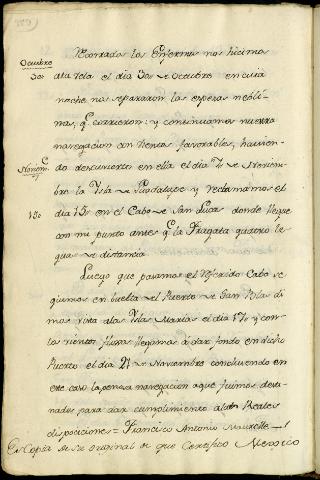 Recontados los Enfermos nos hicimos
Octubre
30 a la Vela el dia 30 de Octubre en cuia
noche nos separaron las espesas nebli-
nas, q.e corrieron: y continuamos nuestra
navegacion con vientos favorables, havien-
Noviem.e do descuvierto en ella el dia 7 de Noviem-
bre la Ysla de Guadalupe y reclamamos el
15 dia 15 en el Cabo de San Lucas donde llegue
con mi punto antes q.e la Fragata quatro le-
guas de distancia
Luego que pasamos el referido Cabo se
guimos en buelta del Puerto de San Blas di
mos vista a las Yslas Marias el dia y con
los vientos flojos llegamos á dar fondo en dicho
Puerto el dia 21 de Noviembre concluiendo en
este caso la penosa navegacion a que fuimos desti-
nados para dar cumplimiento a las Reales
disposiciones = Francisco Antonio Maurelle
Es Copia de su original de que Certifico Mexico